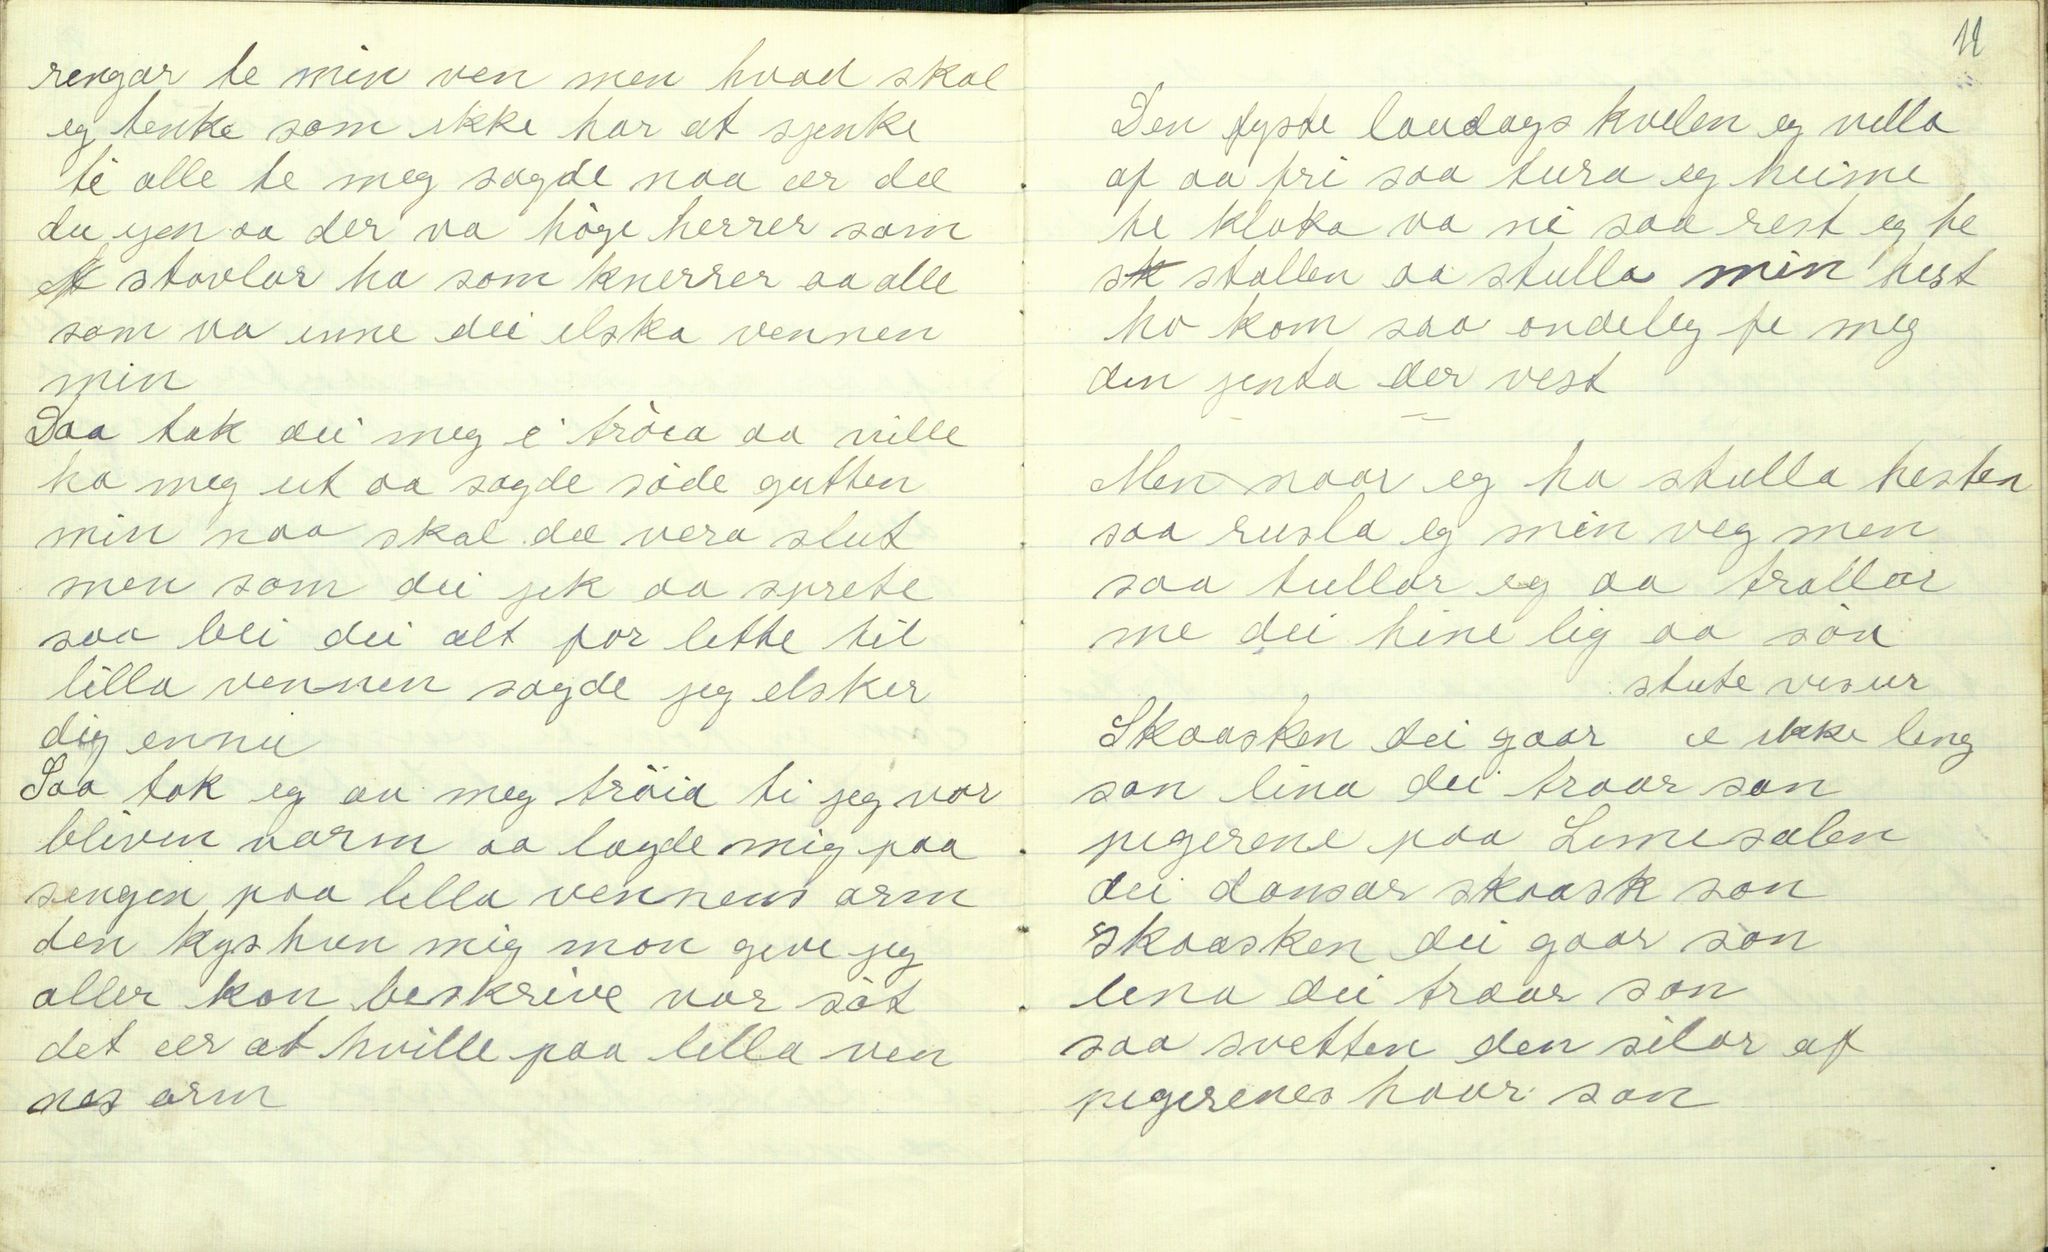 rengar te min ven men hvad skal
eg tenke som ikke har at sjenke
ti alle te meg sagde naa ær dæ
du ijen aa der va höge herrer som
stovlar ha som knerrer aa alle
som va inne dei elska vennen
min
Daa tok dei meg i tröia aa ville
ha meg ut aa sagde söde gutten
min naa skal dæ vera slut
men som dei jek aa sprete
saa blei dei alt for lette til
lilla vennen sagde jeg elsker
dig ennu
Saa tok eg au meg tröia ti jeg var
bliven varm aa lagde mig paa
sengen paa lilla vennens arm
den kys hun mig mon give jeg
aller kan beskrive var söt
det ær at hville paa lilla ven
nes arm
11
Den fyste laudags kvelen eg villa
af aa fri saa tura eg heime
te kloka va ni saa rest eg te
st stallen aa stulla min hest
ho kom saa ondeleg fe meg
den jenta der vest
Men naar eg ha stulla hesten
saa rusla eg min veg men
saa tullar eg aa trallar
me dei hine lig aa söa
stute visur
Skaasken dei gaar æ ikke leng
san lina dei traar san
pigerene paa Limesalen
dei dansar skaask san
Skaasken dei gaar san
lina dei traar san
saa svetten den silar af
pigerenes haar san